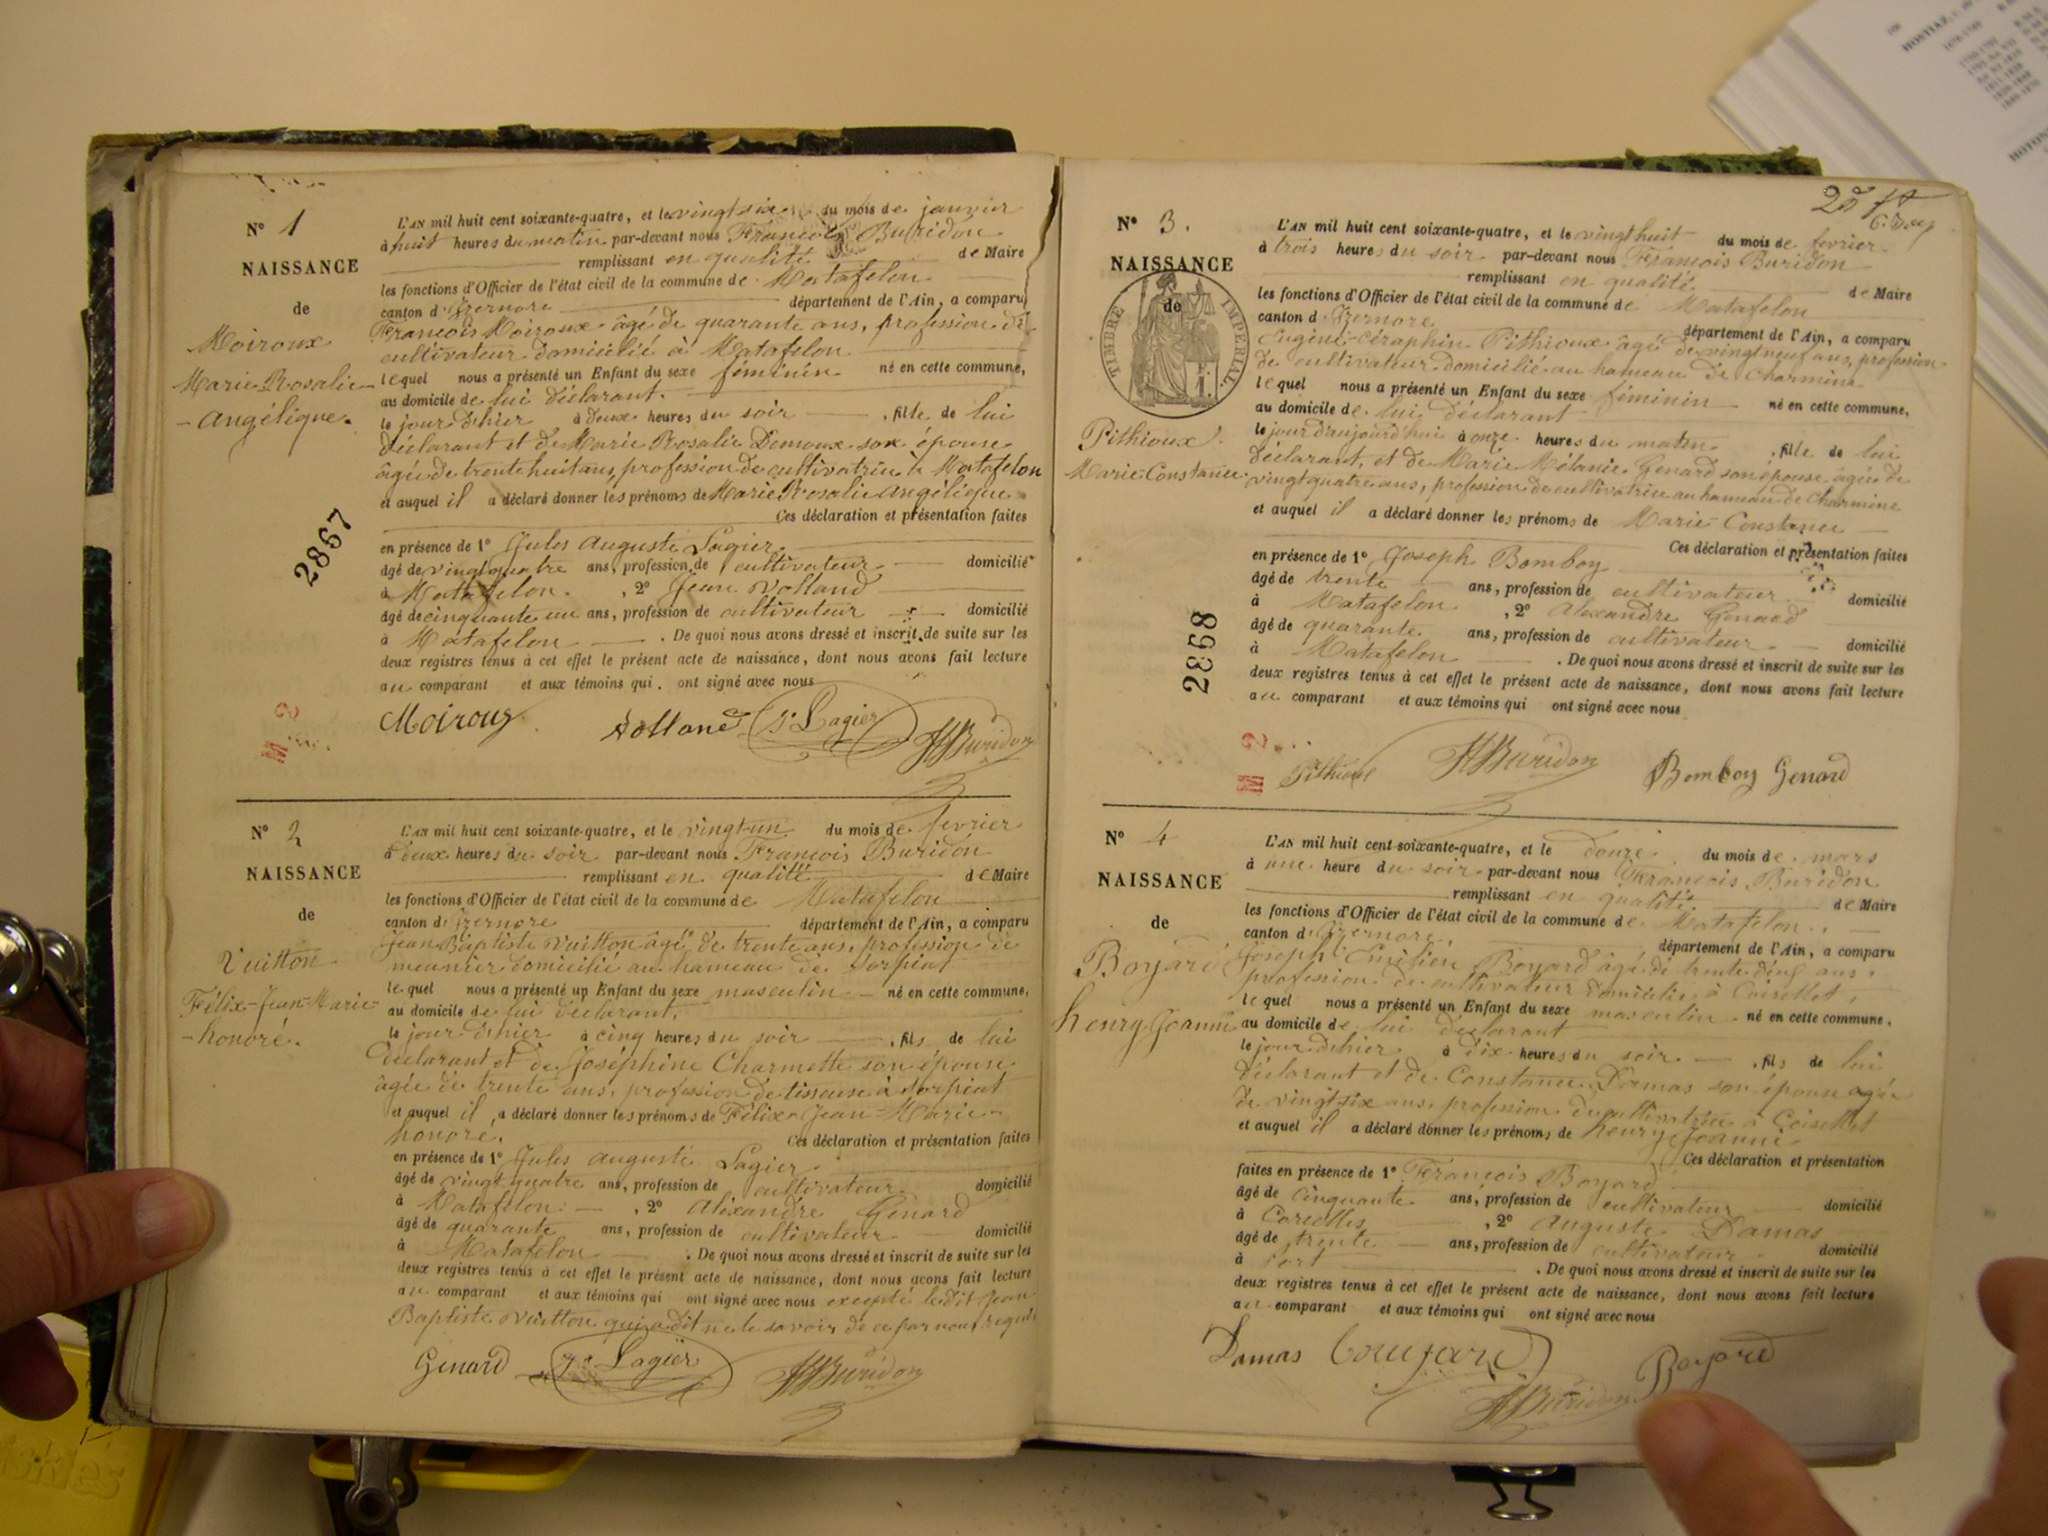 N° 1
NAISSANCE
de
Moiroux
Marie Rosalie
Angélique.
L'AN mil huit cent soixante-quatre, et le vingt six du mois de janvier
à huit heures du matin par-devant nous François Buridon
remplissant en qualité de Maire
les fonctions d'Officier de l'état civil de la commune de Matafelon
canton d'Izernore département de l'Ain, a comparu
François Moiroux âgé de quarante ans, profession de
cultivateur domicilié à Matafelon
lequel nous a présenté un Enfant du sexe féminin né en cette commune,
au domicile de lui déclarant.
le jour d'hier à deux heures du soir , fille de lui
déclarant et de Marie Rosalie Demoux son épouse
âgée de trente huit ans, profession de cultivatrice à Matafelon
et auquel il a déclaré donner les prénoms de Marie Rosalie Angélique
Ces déclaration et présentation faites
en présence de 1° Jules Auguste Lagier
âgé de vingt quatre ans, profession de cultivateur domicilié
à Matafelon. , 2° Jean Volland
âgé de cinquante un ans, profession de cultivateur domicilié
à Matafelon . De quoi nous avons dressé et inscrit de suite sur les
deux registres tenus à cet effet le présent acte de naissance, dont nous avons fait lecture
au comparant et aux témoins qui ont signé avec nous
Moiroux Volland Jes Lagier Buridon
2867
N° 2
NAISSANCE
de
Vuitton
Félix-Jean-Marie
-honoré.
L'AN mil huit cent soixante-quatre, et le vingt-un du mois de fevrier
à deux heures du soir par-devant nous François Buridon
remplissant en qualité de Maire
les fonctions d'Officier de l'état civil de la commune de Matafelon
canton d'Izernore département de l'Ain, a comparu
Jean Baptiste Vuitton âgé de trente ans, profession de
meunier domicilié au hameau de Sorpiat
lequel nous a présenté un Enfant du sexe masculin né en cette commune,
au domicile de lui déclarant.
le jour d'hier à cinq heures du soir , fils de lui
déclarant et de Joséphine Charmette son épouse
âgée de trente ans, profession de tisseuse à Sorpiat
et auquel il a déclaré donner les prénoms de Félix-Jean-Marie-
honoré. Ces déclaration et présentation faites
en présence de 1° Jules Auguste Lagier
âgé de vingt quatre ans, profession de cultivateur domicilié
à Matafelon , 2° Alexandre Genard
âgé de quarante ans, profession de cultivateur domicilié
à Matafelon . De quoi nous avons dressé et inscrit de suite sur les
deux registres tenus à cet effet le présent acte de naissance, dont nous avons fait lecture
au comparant et aux témoins qui ont signé avec nous excepté ledit Jean
Baptiste Vuitton qui a dit ne le savoir de ce par nous requis
Genard Jes Lagier Buridon
N° 3.
NAISSANCE
de
TIMBRE IMPÉRIAL
Pithioux
Marie Constance
L'AN mil huit cent soixante-quatre, et le vingt huit du mois de fevrier
à trois heures du soir par-devant nous François Buridon
remplissant en qualité de Maire
les fonctions d'Officier de l'état civil de la commune de Matafelon
canton d'Izernore département de l'Ain, a comparu
Eugène-Céraphin Pithioux âgé de vingt neuf ans, profession
de cultivateur domicilié au hameau de Charmine
lequel nous a présenté un Enfant du sexe féminin né en cette commune,
au domicile de lui déclarant
le jour d'aujourd'hui à onze heures du matin , fille de lui
déclarant, et de Marie Mélanie Genard son épouse âgée de
vingt quatre ans, profession de cultivatrice au hameau de Charmine
et auquel il a déclaré donner les prénoms de Marie Constance
Ces déclaration et présentation faites
en présence de 1° Joseph Bomboy
âgé de trente ans, profession de cultivateur domicilié
à Matafelon , 2° Alexandre Genard
âgé de quarante ans, profession de cultivateur domicilié
à Matafelon . De quoi nous avons dressé et inscrit de suite sur les
deux registres tenus à cet effet le présent acte de naissance, dont nous avons fait lecture
au comparant et aux témoins qui ont signé avec nous
Pithioux Buridon Bomboy Genard
2868
N° 4
NAISSANCE
de
Boyard
henry Joanni
L'AN mil huit cent soixante-quatre, et le douze du mois de mars
à une heure du soir par-devant nous François Buridon
remplissant en qualité de Maire
les fonctions d'Officier de l'état civil de la commune de Matafelon
canton d'Izernore département de l'Ain, a comparu
Joseph Emilien Boyard âgé de trente deux ans,
profession de cultivateur domicilié à Coiselet,
lequel nous a présenté un Enfant du sexe masculin né en cette commune,
au domicile de lui déclarant
le jour d'hier à dix heures du soir , fils de lui
déclarant et de Constance Damas son épouse agée
de vingt six ans, profession de cultivatrice à Coiselet
et auquel il a déclaré donner les prénoms de henry Joanni
Ces déclaration et présentation
faites en présence de 1° François Boyard
âgé de cinquante ans, profession de cultivateur domicilié
à , 2° Auguste Damas
âgé de trente ans, profession de cultivateur domicilié
à . De quoi nous avons dressé et inscrit de suite sur les
deux registres tenus à cet effet le présent acte de naissance, dont nous avons fait lecture
au comparant et aux témoins qui ont signé avec nous
Damas Boyard
Buridon